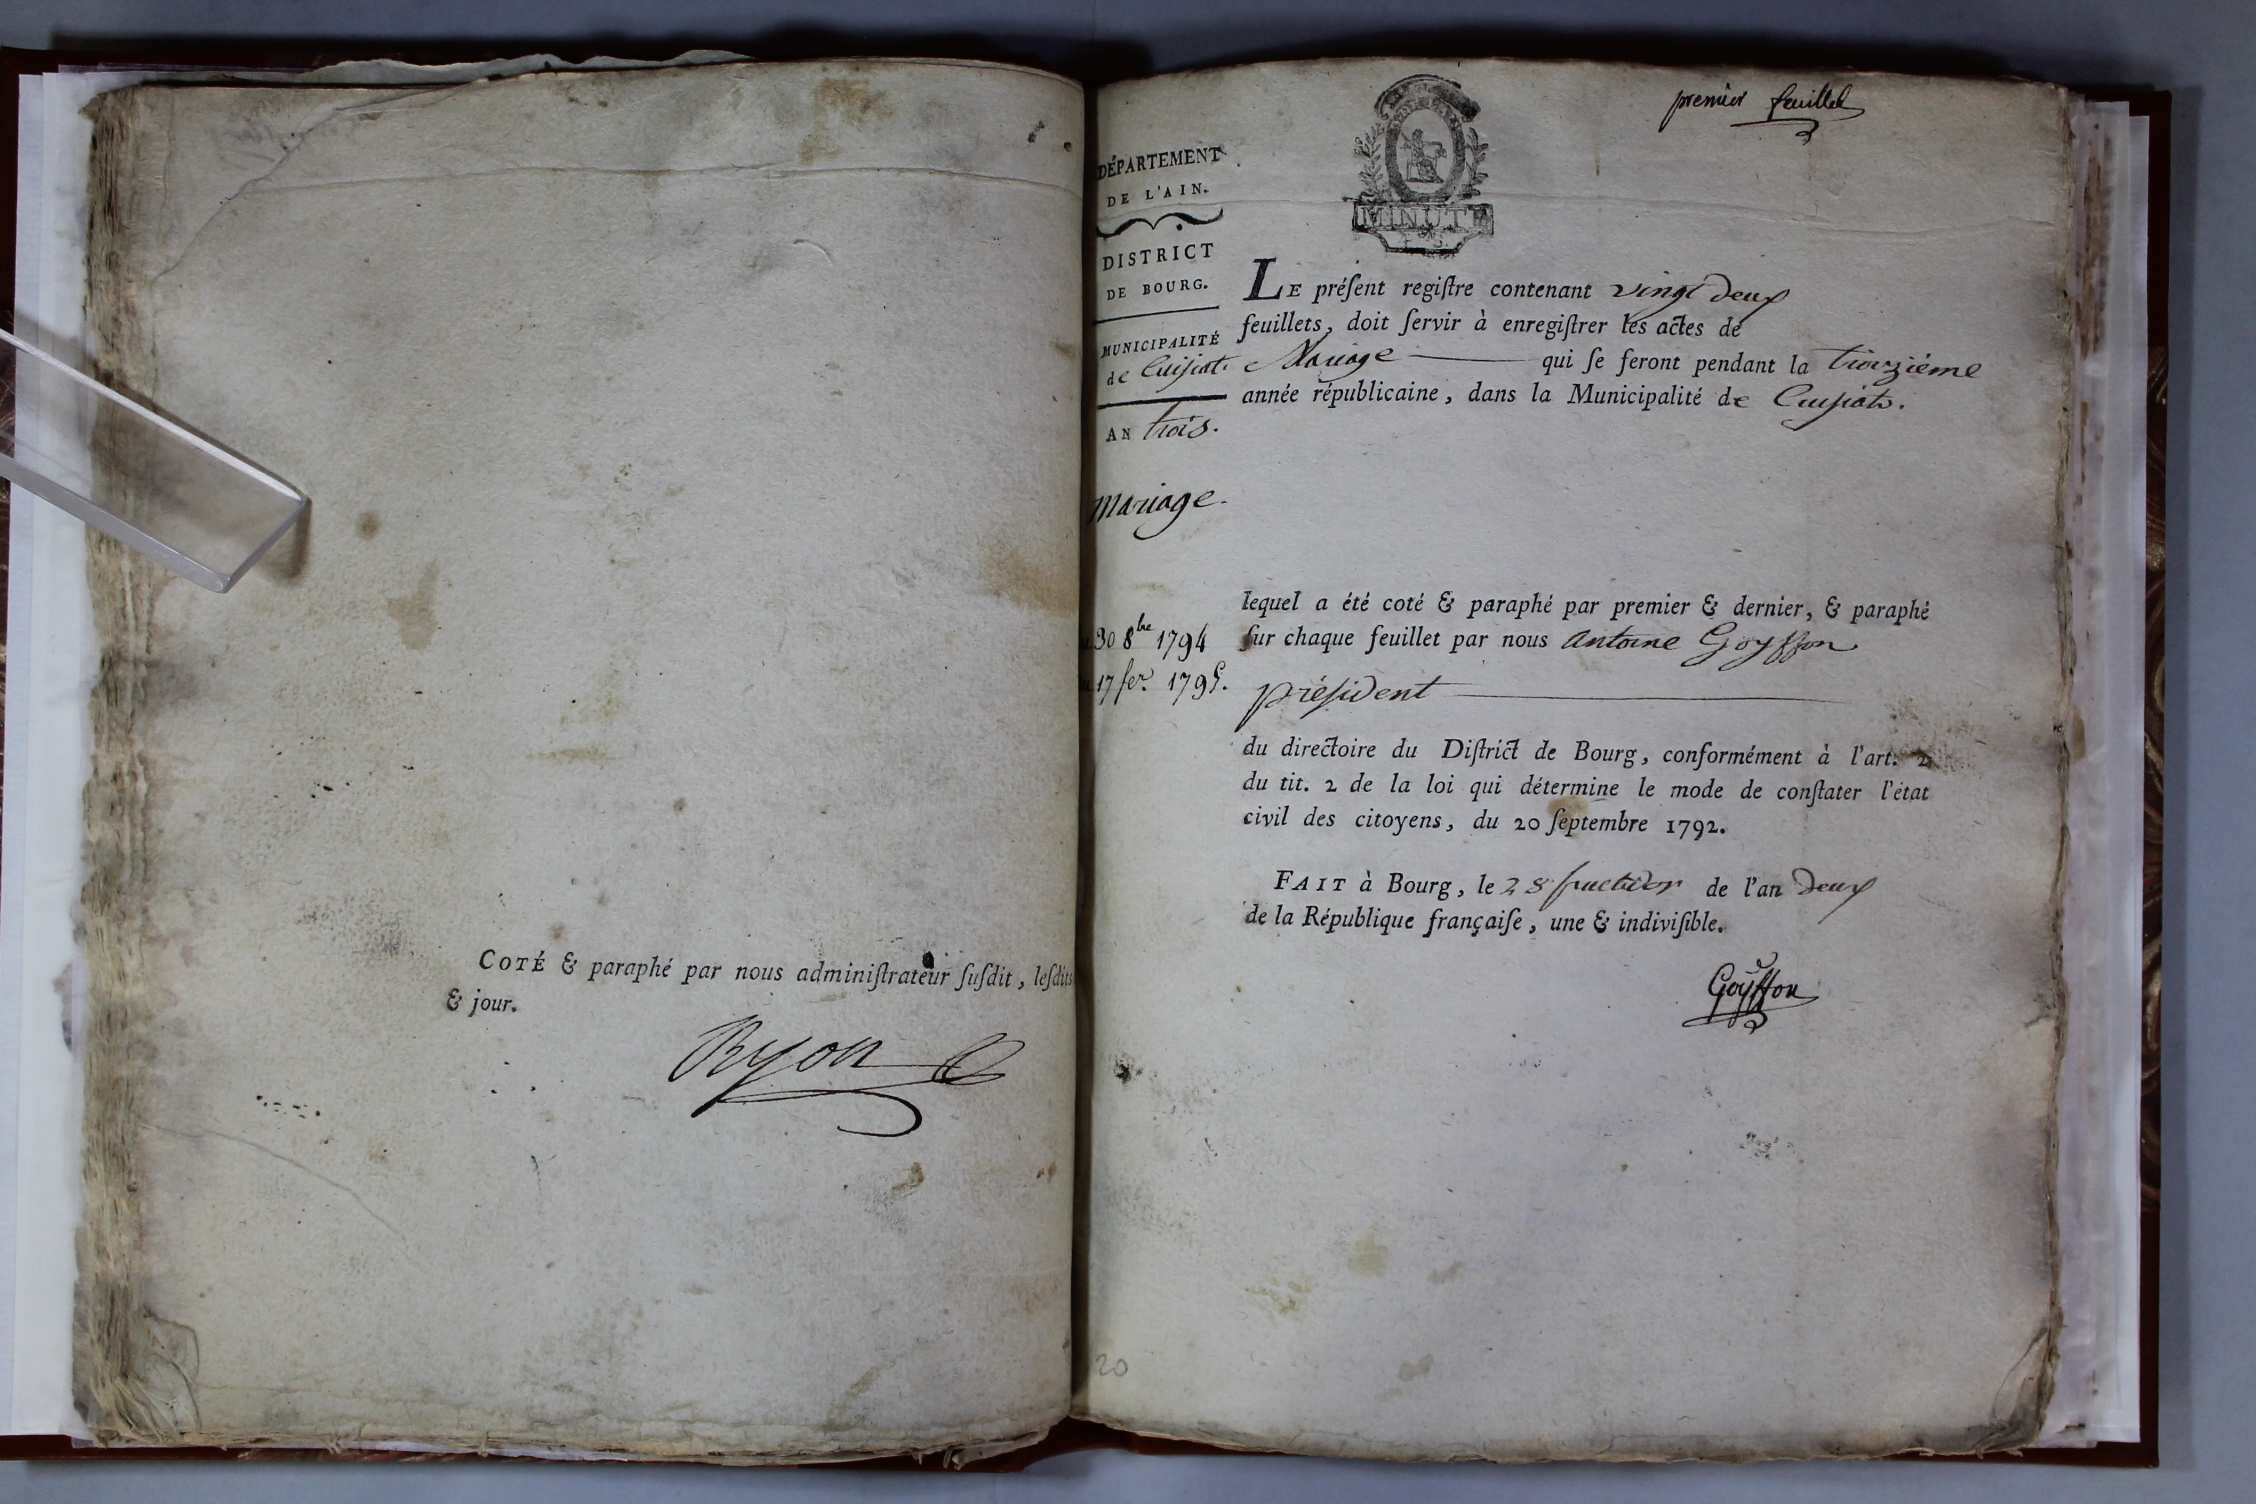 COTÉ & paraphé par nous adminiſtrateur ſuſdit, leſdits
& jour.
Ryon
premier feuillet
MINUTE
DÉPARTEMENT
DE L'AIN.
DISTRICT
DE BOURG.
MUNICIPALITÉ
de Cuisiat.
AN trois.
Mariage.
30 8bre 1794
17 fer. 1795.
LE préſent regiſtre contenant vingt deux
feuillets, doit ſervir à enregiſtrer les actes de
Mariage qui ſe feront pendant la troizième
année républicaine, dans la Municipalité de Cuisiat.
lequel a été coté & paraphé par premier & dernier, & paraphé
ſur chaque feuillet par nous Antoine Goyffon
président
du directoire du Diſtrict de Bourg, conformément à l'art. 2
du tit. 2 de la loi qui détermine le mode de conſtater l'état
civil des citoyens, du 20 ſeptembre 1792.
FAIT à Bourg, le 28 fructidor de l'an deux
de la République françaiſe, une & indiviſible.
Goyffon
20